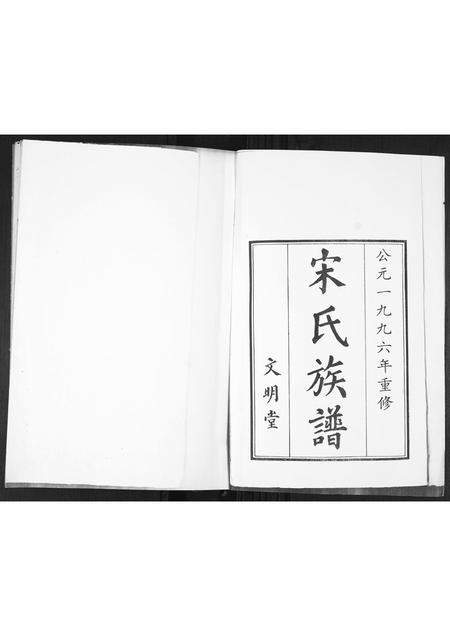 公元一九九六年重修
宋氏族譜
文明堂